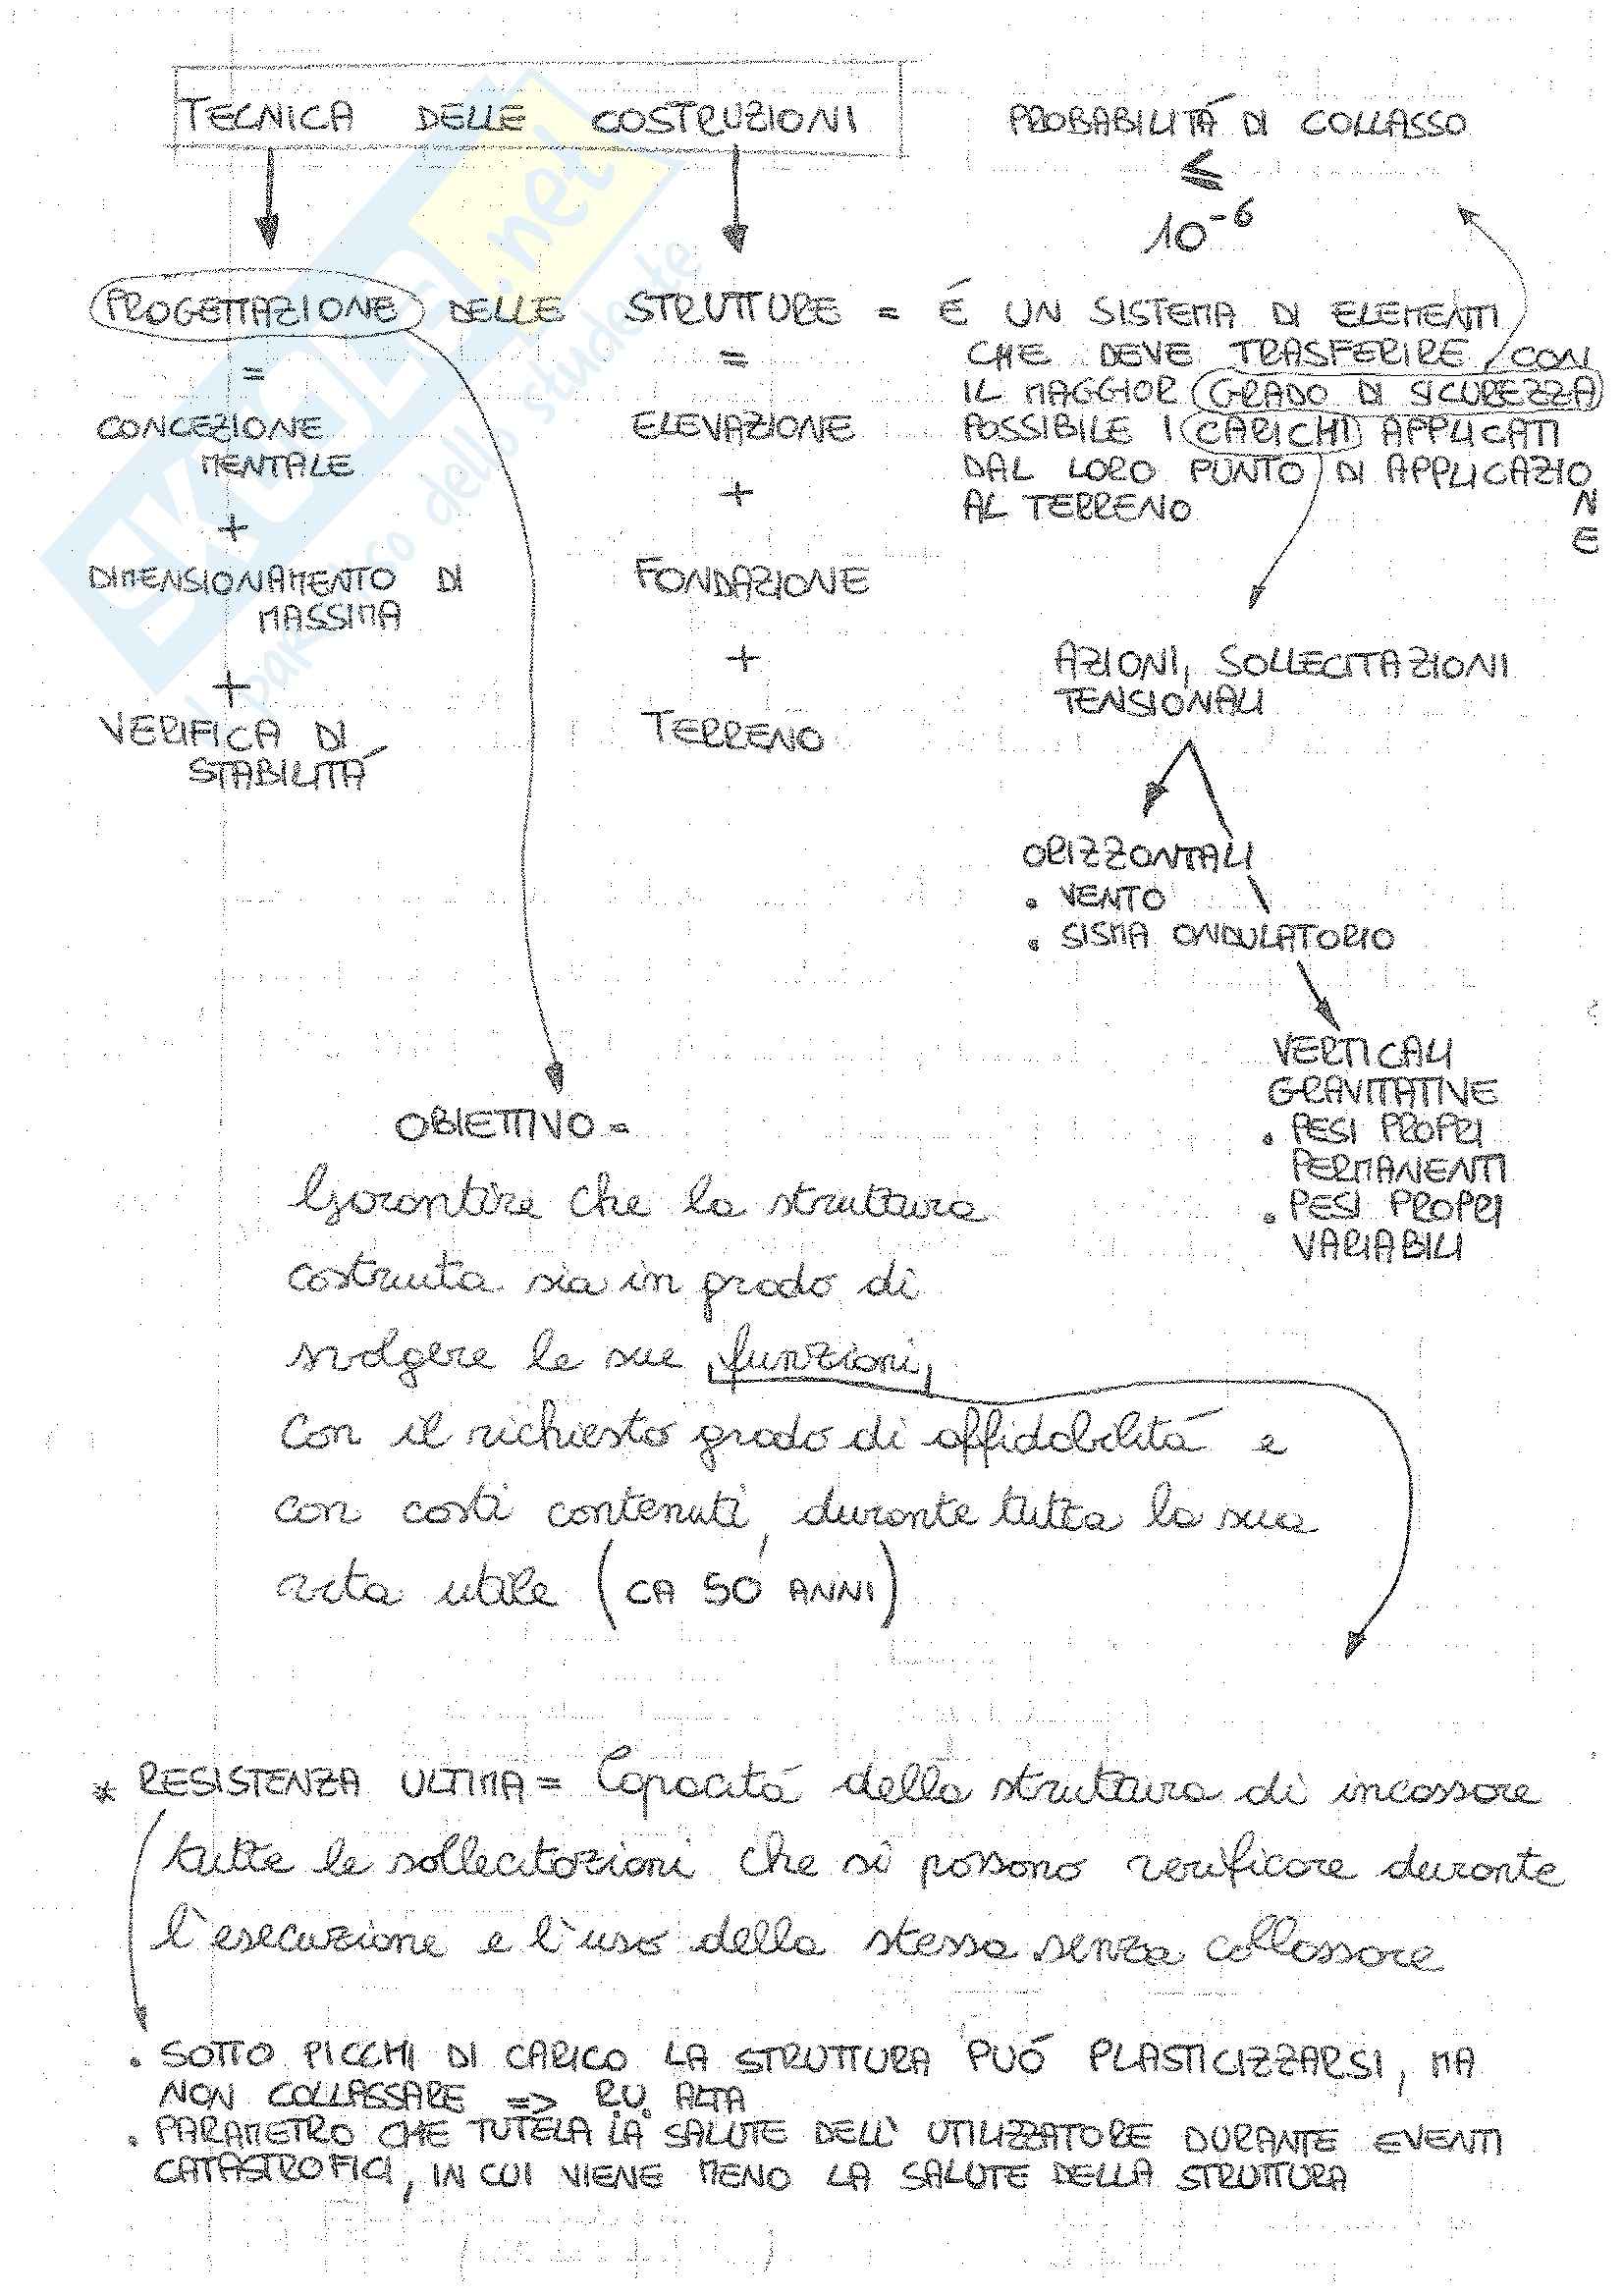 TECNICA DELLE COSTRUZIONI
PROBABILITÁ DI COLLASSO
≤
10⁻⁶
PROGETTAZIONE DELLE STRUTTURE = É UN SISTEMA DI ELEMENTI
CHE DEVE TRASFERIRE, CON
IL MAGGIOR GRADO DI SICUREZZA
POSSIBILE I CARICHI APPLICATI
DAL LORO PUNTO DI APPLICAZIO
N
E
AL TERRENO
=
CONCEZIONE
MENTALE
+
DIMENSIONAMENTO DI
MASSIMA
+
VERIFICA DI
STABILITÁ
=
ELEVAZIONE
+
FONDAZIONE
+
TERRENO
AZIONI, SOLLECITAZIONI
TENSIONALI
ORIZZONTALI
• VENTO
• SISMA ONDULATORIO
VERTICALI
GRAVITATIVE
• PESI PROPRI
PERMANENTI
• PESI PROPRI
VARIABILI
OBIETTIVO =
Garantire che la struttura
costruita sia in grado di
svolgere le sue funzioni,
con il richiesto grado di affidabilitá e
con costi contenuti, durante tutta la sua
vita utile (CA 50 ANNI)
* RESISTENZA ULTIMA = Capacitá della struttura di incassare
tutte le sollecitazioni che si possono verificare durante
l'esecuzione e l'uso della stessa senza collassare
• SOTTO PICCHI DI CARICO LA STRUTTURA PUÓ PLASTICIZZARSI, MA
NON COLLASSARE => R.U. ALTA
• PARAMETRO CHE TUTELA LA SALUTE DELL' UTILIZZATORE DURANTE EVENTI
CATASTROFICI, IN CUI VIENE MENO LA SALUTE DELLA STRUTTURA
.net
dello studente